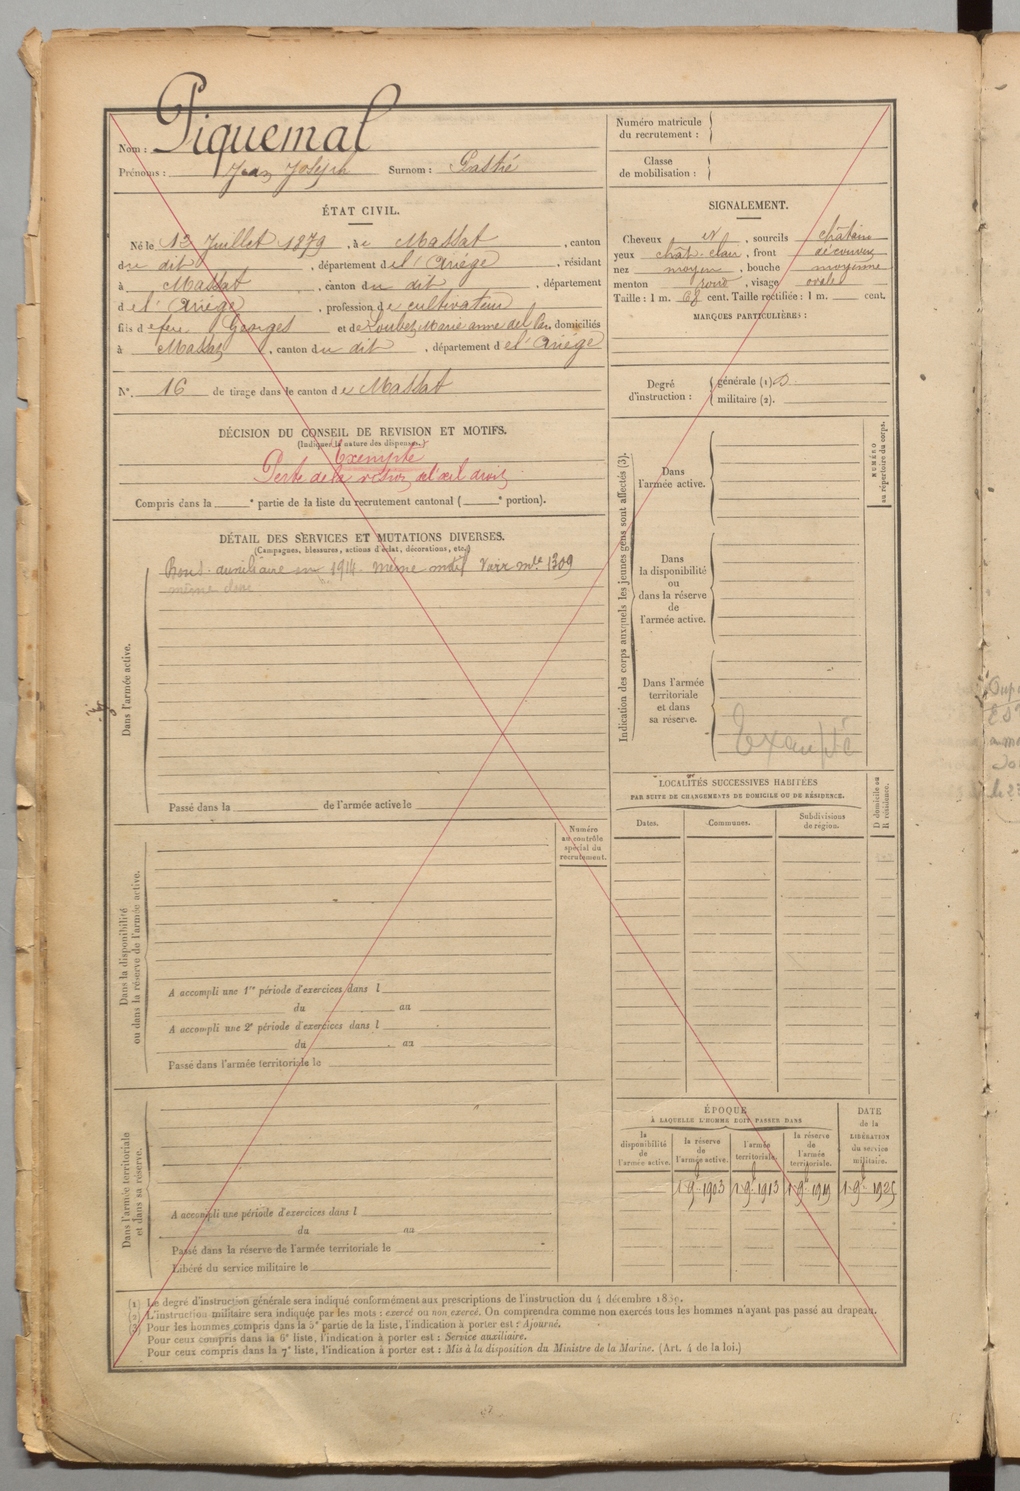 Nom : Piquemal
Prénoms : Jean Joseph Surnom : Gastié
ÉTAT CIVIL.
Né le 13 Juillet 1879, à Massat, canton
du dit, département de l'Ariège, résidant
à Massat, canton du dit, département
de l'Ariège, profession de cultivateur
fils de feu Georges et de Loubet Marie anne domiciliés
à Massat, canton du dit, département de l'Ariège
N°. 16 de tirage dans le canton de Massat
DÉCISION DU CONSEIL DE REVISION ET MOTIFS.
(Indiquer la nature des dispenses.)
Exempté
Perte de la vision de l'œil droit
Compris dans la ____e partie de la liste du recrutement cantonal (____e portion).
DÉTAIL DES SERVICES ET MUTATIONS DIVERSES.
(Campagnes, blessures, actions d'éclat, décorations, etc.)
auxiliaire en 1914. même motif Voir mle 1309
même classe
Dans l'armée active.
Passé dans la ____ de l'armée active le
Numéro
au contrôle
spécial du
recrutement.
Dans la disponibilité
ou dans la réserve de l'armée active.
A accompli une 1re période d'exercices dans l
du ____ au
A accompli une 2e période d'exercices dans l
du ____ au
Passé dans l'armée territoriale le
Dans l'armée territoriale
et dans sa réserve.
A accompli une période d'exercices dans l
du ____ au
Passé dans la réserve de l'armée territoriale le
Libéré du service militaire le
Numéro matricule
du recrutement :
Classe
de mobilisation :
SIGNALEMENT.
Cheveux et, sourcils châtain
yeux chât. clair, front découvert
nez moyen, bouche moyenne
menton rond, visage ovale
Taille : 1 m. 68 cent. Taille rectifiée : 1 m. ____ cent.
MARQUES PARTICULIÈRES :
Degré
d'instruction :
générale (1) 3
militaire (2).
Indication des corps auxquels les jeunes gens sont affectés (3).
Dans
l'armée active.
NUMÉRO
au répertoire du corps.
Dans
la disponibilité
ou
dans la réserve
de
l'armée active.
Dans l'armée
territoriale
et dans
sa réserve.
Exempté
LOCALITÉS SUCCESSIVES HABITÉES
PAR SUITE DE CHANGEMENTS DE DOMICILE OU DE RÉSIDENCE.
Dates.
Communes.
Subdivisions
de région.
D domicile ou
R résidence.
ÉPOQUE
À LAQUELLE L'HOMME DOIT PASSER DANS
DATE
de la
LIBÉRATION
du service
militaire.
la
disponibilité
de
l'armée active.
la réserve
de
l'armée active.
l'armée
territoriale.
la réserve
de
l'armée
territoriale.
1 9b 1903 1 9b 1913 1 9b 1919 1 9b 1925
(1) Le degré d'instruction générale sera indiqué conformément aux prescriptions de l'instruction du 4 décembre 1889.
(2) L'instruction militaire sera indiquée par les mots : exercé ou non exercé. On comprendra comme non exercés tous les hommes n'ayant pas passé au drapeau.
(3) Pour les hommes compris dans la 5e partie de la liste, l'indication à porter est : Ajourné.
Pour ceux compris dans la 6e liste, l'indication à porter est : Service auxiliaire.
Pour ceux compris dans la 7e liste, l'indication à porter est : Mis à la disposition du Ministre de la Marine. (Art. 4 de la loi.)